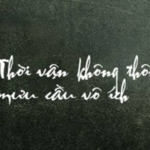 Thời vận không thô
mưu cầu vô ích